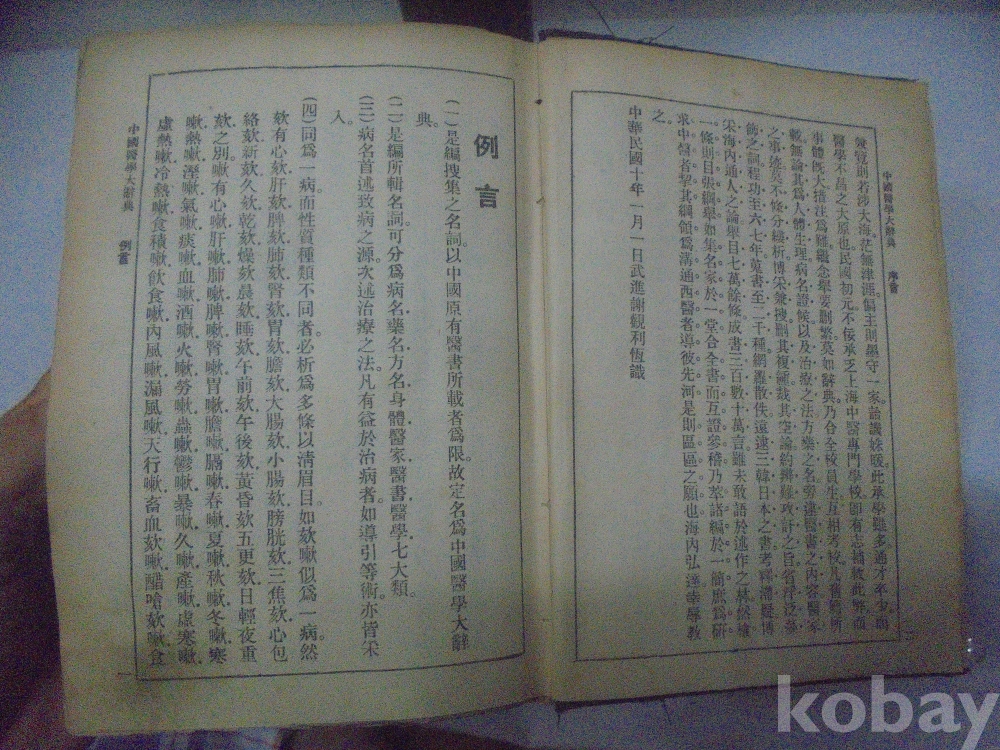 中國醫學大辭典 序言
兼覽則若涉大海茫無津涯偏主則墨守一家諭譏姝暖此承學雖多通才年少而
醫學不昌之大原也民國初元不佞承乏上海中醫專門學校即有志補救此弊顧
事體旣大措注爲難繼念舉要刪繁莫如辭典乃合全校員生互相考校凡舊籍所
載無論其爲人體生理病名證候以及治療之法方藥之名旁逮醫書之內容醫家
之事迹莫不條分縷析博采兼搜刪其複緟裁其空論約
飾之詞程功至六七年蒐書至二千種網羅散佚遠逮三韓日本之書考釋
宋海內通人之論舉目七萬餘條成書三百數十萬言雖未敢語於述作之林然維
一條則目張綱舉如集名家於一堂合全書而互證參稽乃萃諸編於一簡庶爲研
求中醫者挈其綱領爲溝通西醫者導彼先河是則區區之願也海內弘達幸辱教
之。
中華民國十年一月一日武進謝觀利恆識
例言
(一)是編搜集之名詞。以中國原有醫書所載者爲限。故定名爲中國醫學大辭
典。
(二)是編所輯名詞。可分爲病名藥名方名身體醫家醫書醫學七大類。
(三)病名首述致病之源。次述治療之法。凡有益於治病者。如導引等術。亦皆采
入。
(四)同爲一病。而性質種類不同者。必析爲多條。以清眉目。如欬嗽似爲一病。然
欬有心欬肝欬脾欬肺欬腎欬胃欬膽欬大腸欬小腸欬膀胱欬三焦欬心包
絡欬新欬久欬乾欬燥欬晨欬睡欬午前欬午後欬黃昏欬五更欬日輕夜重
欬之別。嗽有心嗽肝嗽肺嗽脾嗽腎嗽胃嗽膽嗽膈嗽春嗽夏嗽秋嗽冬嗽寒
嗽熱嗽溼嗽氣嗽痰嗽血嗽酒嗽火嗽勞嗽蟲嗽鬱嗽暴嗽久嗽產嗽虛寒嗽
虛熱嗽冷熱嗽食積嗽飲食嗽內風嗽漏風嗽天行嗽畜血欬嗽醋嗆欬嗽食
中國醫學大辭典 例言
一
kobay